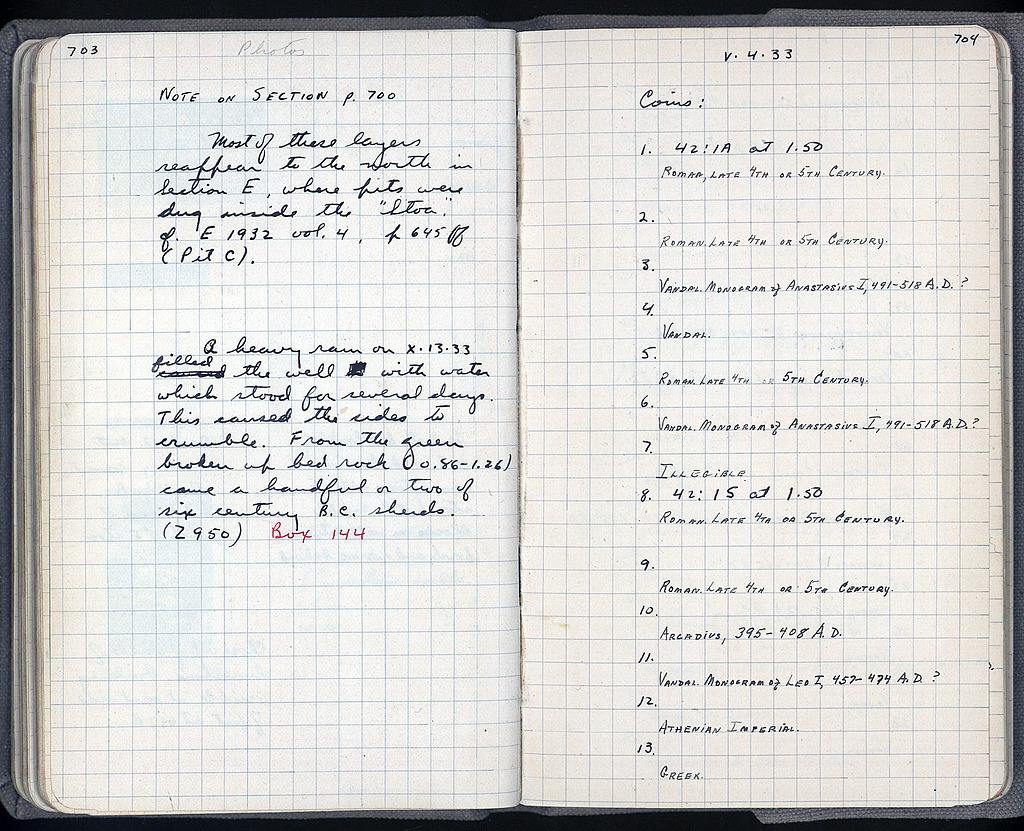 703
Photos
NOTE ON SECTION p. 700
Most of these layers
reappear to the north in
Section E, where pits were
dug inside the "Stoa".
cf. E 1932 vol. 4, p 645 ff
(Pit C).
A heavy rain on X.13.33
filled
caused the well with water
which stood for several days.
This caused the sides to
crumble. From the green
broken up bed rock (0.86-1.26)
came a handful or two of
six century B.C. sherds.
(Z 950) Box 144
704
V. 4. 33
Coins:
1. 42:1A at 1.50
ROMAN, LATE 4TH OR 5TH CENTURY.
2.
ROMAN. LATE 4TH OR 5TH CENTURY.
3.
VANDAL. MONOGRAM of ANASTASIUS I, 491-518 A.D. ?
4.
VANDAL.
5.
ROMAN. LATE 4TH OR 5TH CENTURY.
6.
VANDAL. MONOGRAM of ANASTASIUS I, 491-518 A.D.?
7.
ILLEGIBLE
8. 42:15 at 1.50
ROMAN. LATE 4TH OR 5TH CENTURY.
9.
ROMAN. LATE 4TH OR 5TH CENTURY.
10.
ARCADIUS, 395-408 A.D.
11.
VANDAL. MONOGRAM of LEO I, 457-474 A.D. ?
12.
ATHENIAN IMPERIAL.
13.
GREEK.